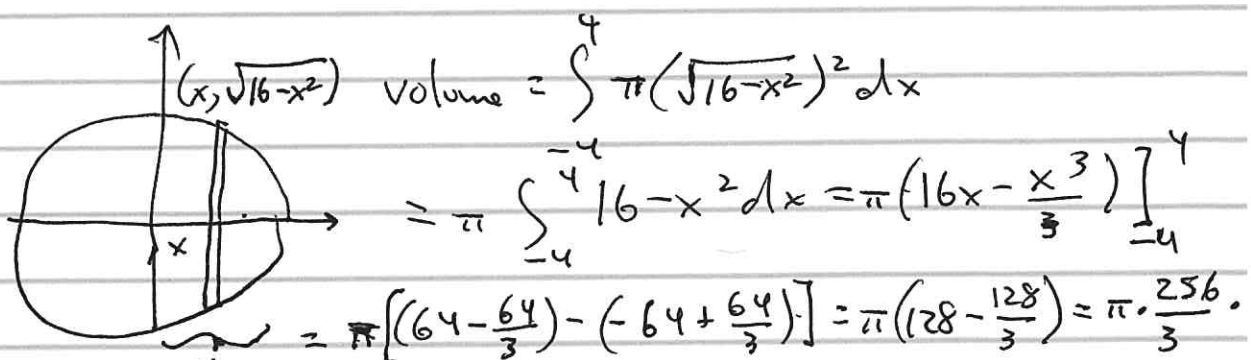 (x, √(16-x²)) volume = ∫₋₄⁴ π(√(16-x²))² dx
x
= π ∫₋₄⁴ 16-x² dx = π(16x - x³/3)]₋₄⁴
= π[(64 - 64/3) - (-64 + 64/3)] = π(128 - 128/3) = π · 256/3.